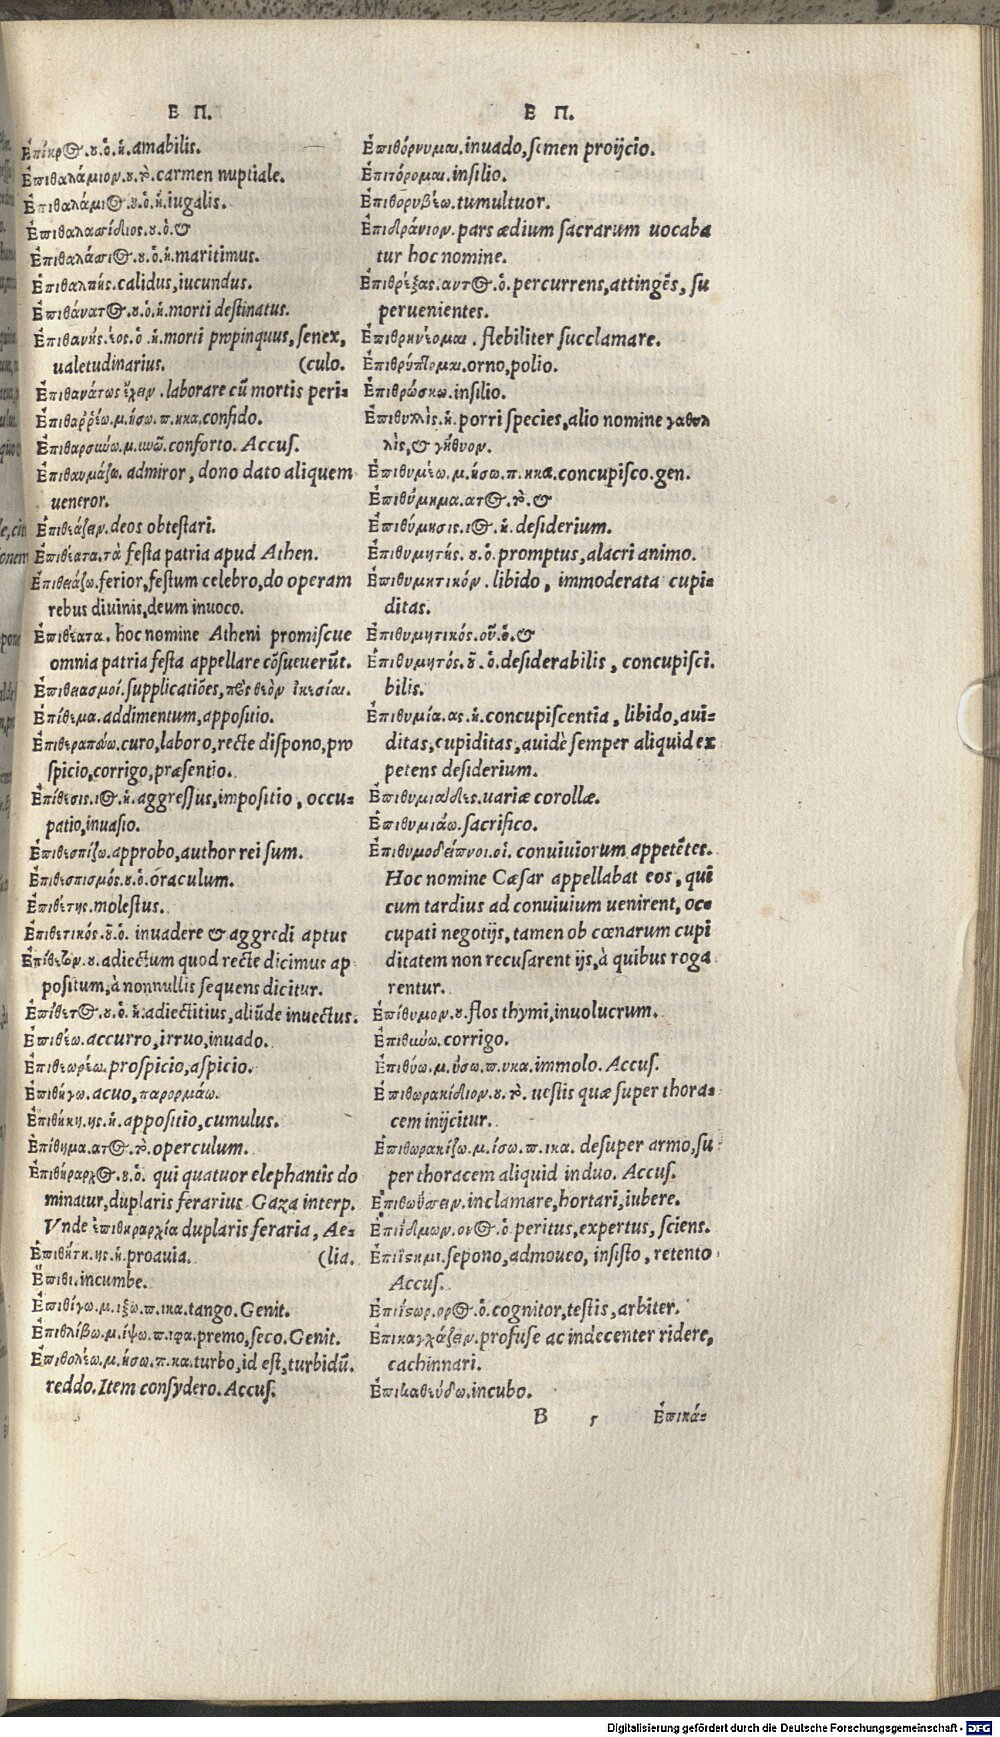 Ε Π.
Ἐπίηρος.ου.ὁ.ἡ.amabilis.
Ἐπιθαλάμιον.ου.τὸ.carmen nuptiale.
Ἐπιθαλάμιος.ου.ὁ.ἡ.iugalis.
Ἐπιθαλασσίδιος.ου.ὁ.&
Ἐπιθαλάσσιος.ου.ὁ.ἡ.maritimus.
Ἐπιθαλπής.calidus,iucundus.
Ἐπιθάνατος.ου.ὁ.ἡ.morti destinatus.
Ἐπιθανής.έος.ὁ.ἡ.morti propinquus,senex,
ualetudinarius. (culo.
Ἐπιθανάτως ἔχειν.laborare cũ mortis peri-
Ἐπιθαῤῥέω.μ.ήσω.π.ηκα.confido.
Ἐπιθαρσύνω.μ.υνῶ.conforto. Accus.
Ἐπιθαυμάζω. admiror, dono dato aliquem
ueneror.
Ἐπιθεάζειν.deos obtestari.
Ἐπιθέατα.τὰ festa patria apud Athen.
Ἐπιθειάζω.ferior,festum celebro,do operam
rebus diuinis,deum inuoco.
Ἐπιθέατα. hoc nomine Atheni promiscue
omnia patria festa appellare cõsueuerũt.
Ἐπιθειασμοί.supplicatiões,πρὸς θεὸν ἱκεσίαι.
Ἐπίθεμα.addimentum,appositio.
Ἐπιθεραπεύω.curo,laboro,recte dispono,pro
spicio,corrigo,præsentio.
Ἐπίθεσις.ιος.ἡ.aggressus,impositio, occu-
patio,inuasio.
Ἐπιθεσπίζω.approbo,author rei sum.
Ἐπιθεσπισμός.οῦ.ὁ.oraculum.
Ἐπιθέτης.molestus.
Ἐπιθετικός.οῦ.ὁ. inuadere & aggredi aptus
Ἐπίθετον.ου.adiectum quod recte dicimus ap
positum,à nonnullis sequens dicitur.
Ἐπίθετος.ου.ὁ.ἡ.adiectitius,aliũde inuectus.
Ἐπιθέω.accurro,irruo,inuado.
Ἐπιθεωρέω.prospicio,aspicio.
Ἐπιθήγω.acuo,παρορμάω.
Ἐπιθήκη.ης.ἡ.appositio,cumulus.
Ἐπίθημα.ατος.τὸ.operculum.
Ἐπιθήραρχος.ου.ὁ. qui quatuor elephantis do
minatur,duplaris ferarius Gaza interp.
Vnde ἐπιθηραρχία duplaris feraria, Ae-
Ἐπιθήτη.ης.ἡ.proauia. (lia.
Ἔπιθι.incumbe.
Ἐπιθίγω.μ.ιξω.π.ιχα.tango.Genit.
Ἐπιθλίβω.μ.ίψω.π.ιφα.premo,seco.Genit.
Ἐπιθολέω.μ.ήσω.π.κα.turbo,id est,turbidũ.
reddo.Item consydero.Accus.
Ε Π.
Ἐπιθόρνυμαι.inuado,semen proijcio.
Ἐπιτόρομαι.insilio.
Ἐπιθορυβέω.tumultuor.
Ἐπιδράνιον.pars ædium sacrarum uocaba
tur hoc nomine.
Ἐπιθρέξας.αντος.ὁ.percurrens,attingẽs, su
peruenientes.
Ἐπιθρηνέομαι. flebiliter succlamare.
Ἐπιθρύπτομαι.orno,polio.
Ἐπιθρώσκω.insilio.
Ἐπιθυλλὶς.ἡ.porri species,alio nomine γαθυλ
λὶς,& γήθυον.
Ἐπιθυμέω.μ.ήσω.π.ηκα.concupisco.gen.
Ἐπιθύμημα.ατος.τὸ.&
Ἐπιθύμησις.ιος.ἡ.desiderium.
Ἐπιθυμητής.οῦ.ὁ.promptus,alacri animo.
Ἐπιθυμητικόν.libido, immoderata cupi-
ditas.
Ἐπιθυμητικός.οῦ.ὁ.&
Ἐπιθυμητός.οῦ.ὁ.desiderabilis, concupisci.
bilis.
Ἐπιθυμία.ας.ἡ.concupiscentia, libido,aui-
ditas,cupiditas,auidè semper aliquid ex
petens desiderium.
Ἐπιθυμιάδες.uariæ corollæ.
Ἐπιθυμιάω.sacrifico.
Ἐπιθυμοδείπνοι.οἱ. conuiuiorum appetẽtes.
Hoc nomine Cæsar appellabat eos, qui
cum tardius ad conuiuium uenirent, oc-
cupati negotijs,tamen ob cœnarum cupi
ditatem non recusarent ijs,à quibus roga
rentur.
Ἐπίθυμον.ου.flos thymi,inuolucrum.
Ἐπιθύνω.corrigo.
Ἐπιθύω.μ.ύσω.π.υκα.immolo. Accus.
Ἐπιθωρακίδιον.ου.τὸ. uestis quæ super thora-
cem inijcitur.
Ἐπιθωρακίζω.μ.ίσω.π.ικα. desuper armo,su
per thoracem aliquid induo. Accus.
Ἐπιθωΰσσειν.inclamare,hortari,iubere.
Ἐπιΐδμων.ονος.ὁ.peritus,expertus,sciens.
Ἐπιΐστημι.sepono,admoueo, insisto, retento
Accus.
Ἐπιΐστωρ.ορος.ὁ.cognitor,testis,arbiter.
Ἐπικαγχάζειν.profuse ac indecenter ridere,
cachinnari.
Ἐπικαθεύδω.incubo.
B 5 Ἐπικά-
Digitalisierung gefördert durch die Deutsche Forschungsgemeinschaft - DFG